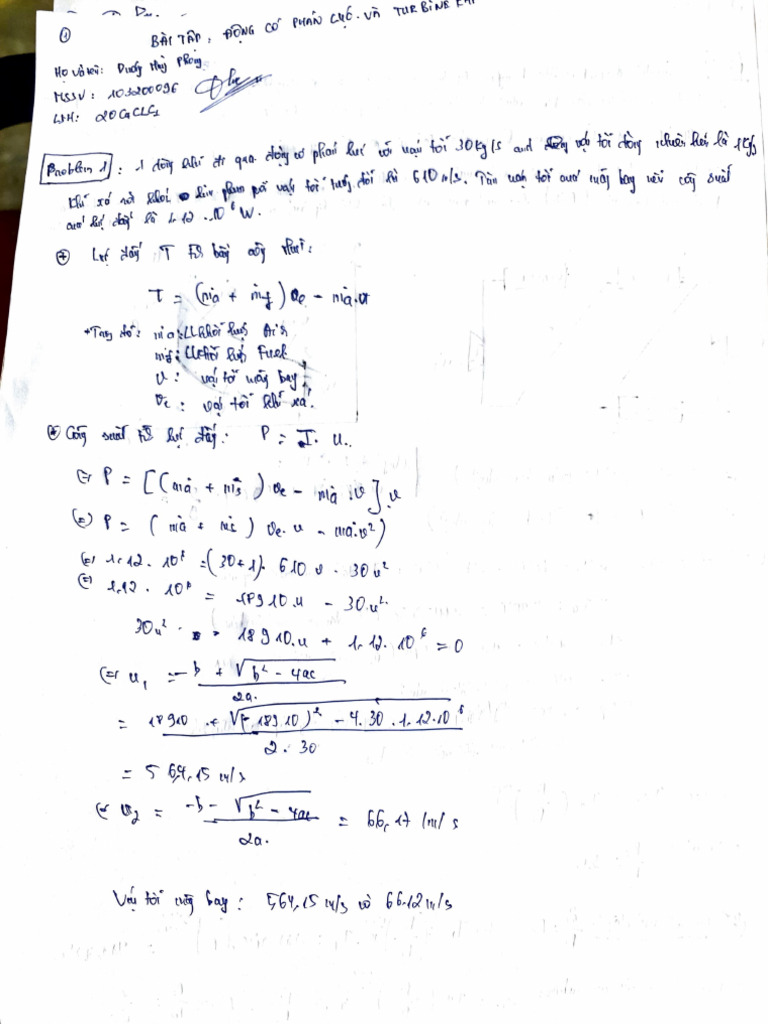 ①
BÀI TẬP: ĐỘNG CƠ PHẢN LỰC VÀ TURBINE KHÍ
Họ và tên: Dương Phong
MSSV: 103200096
LSH: 20C4CLC1
Problem 1: 1 dòng khí đi qua động cơ phản lực với vận tốc 30 kg/s and vận tốc dòng nhiên liệu là 1 kg/s
Khí xả rời khỏi vận tốc tương đối là 610 m/s. Tìm vận tốc máy bay nếu công suất
lực đẩy là 1.12.10⁶ W.
⊕ Lực đẩy T
T = (ṁa + ṁf) ve - ṁa.v
* Trong đó: ṁa: LL khối lượng Air
ṁf: LL khối lượng Fuel
v: vận tốc máy bay
ve: vận tốc khí xả.
⊕ Công suất lực đẩy: P = T. u.
⇔ P = [(ṁa + ṁf) ve - ṁa.v].v
⇔ P = (ṁa + ṁf) ve.u - ṁa.v²)
⇔ 1.12.10⁶ = (30+1). 610 v - 30v²
⇔ 1.12.10⁶ = 18910.u - 30.u²
30u² - 18910.u + 1.12.10⁶ = 0
⇔ u₁ = -b + √b² - 4ac / 2a.
= 18910 + √(-18910)² - 4.30.1.12.10⁶ / 2.30
= 564,15 m/s
⇔ v₂ = -b - √b² - 4ac / 2a. = 66,17 (m/s
Vận tốc máy bay: 564,15 m/s và 66.12 m/s